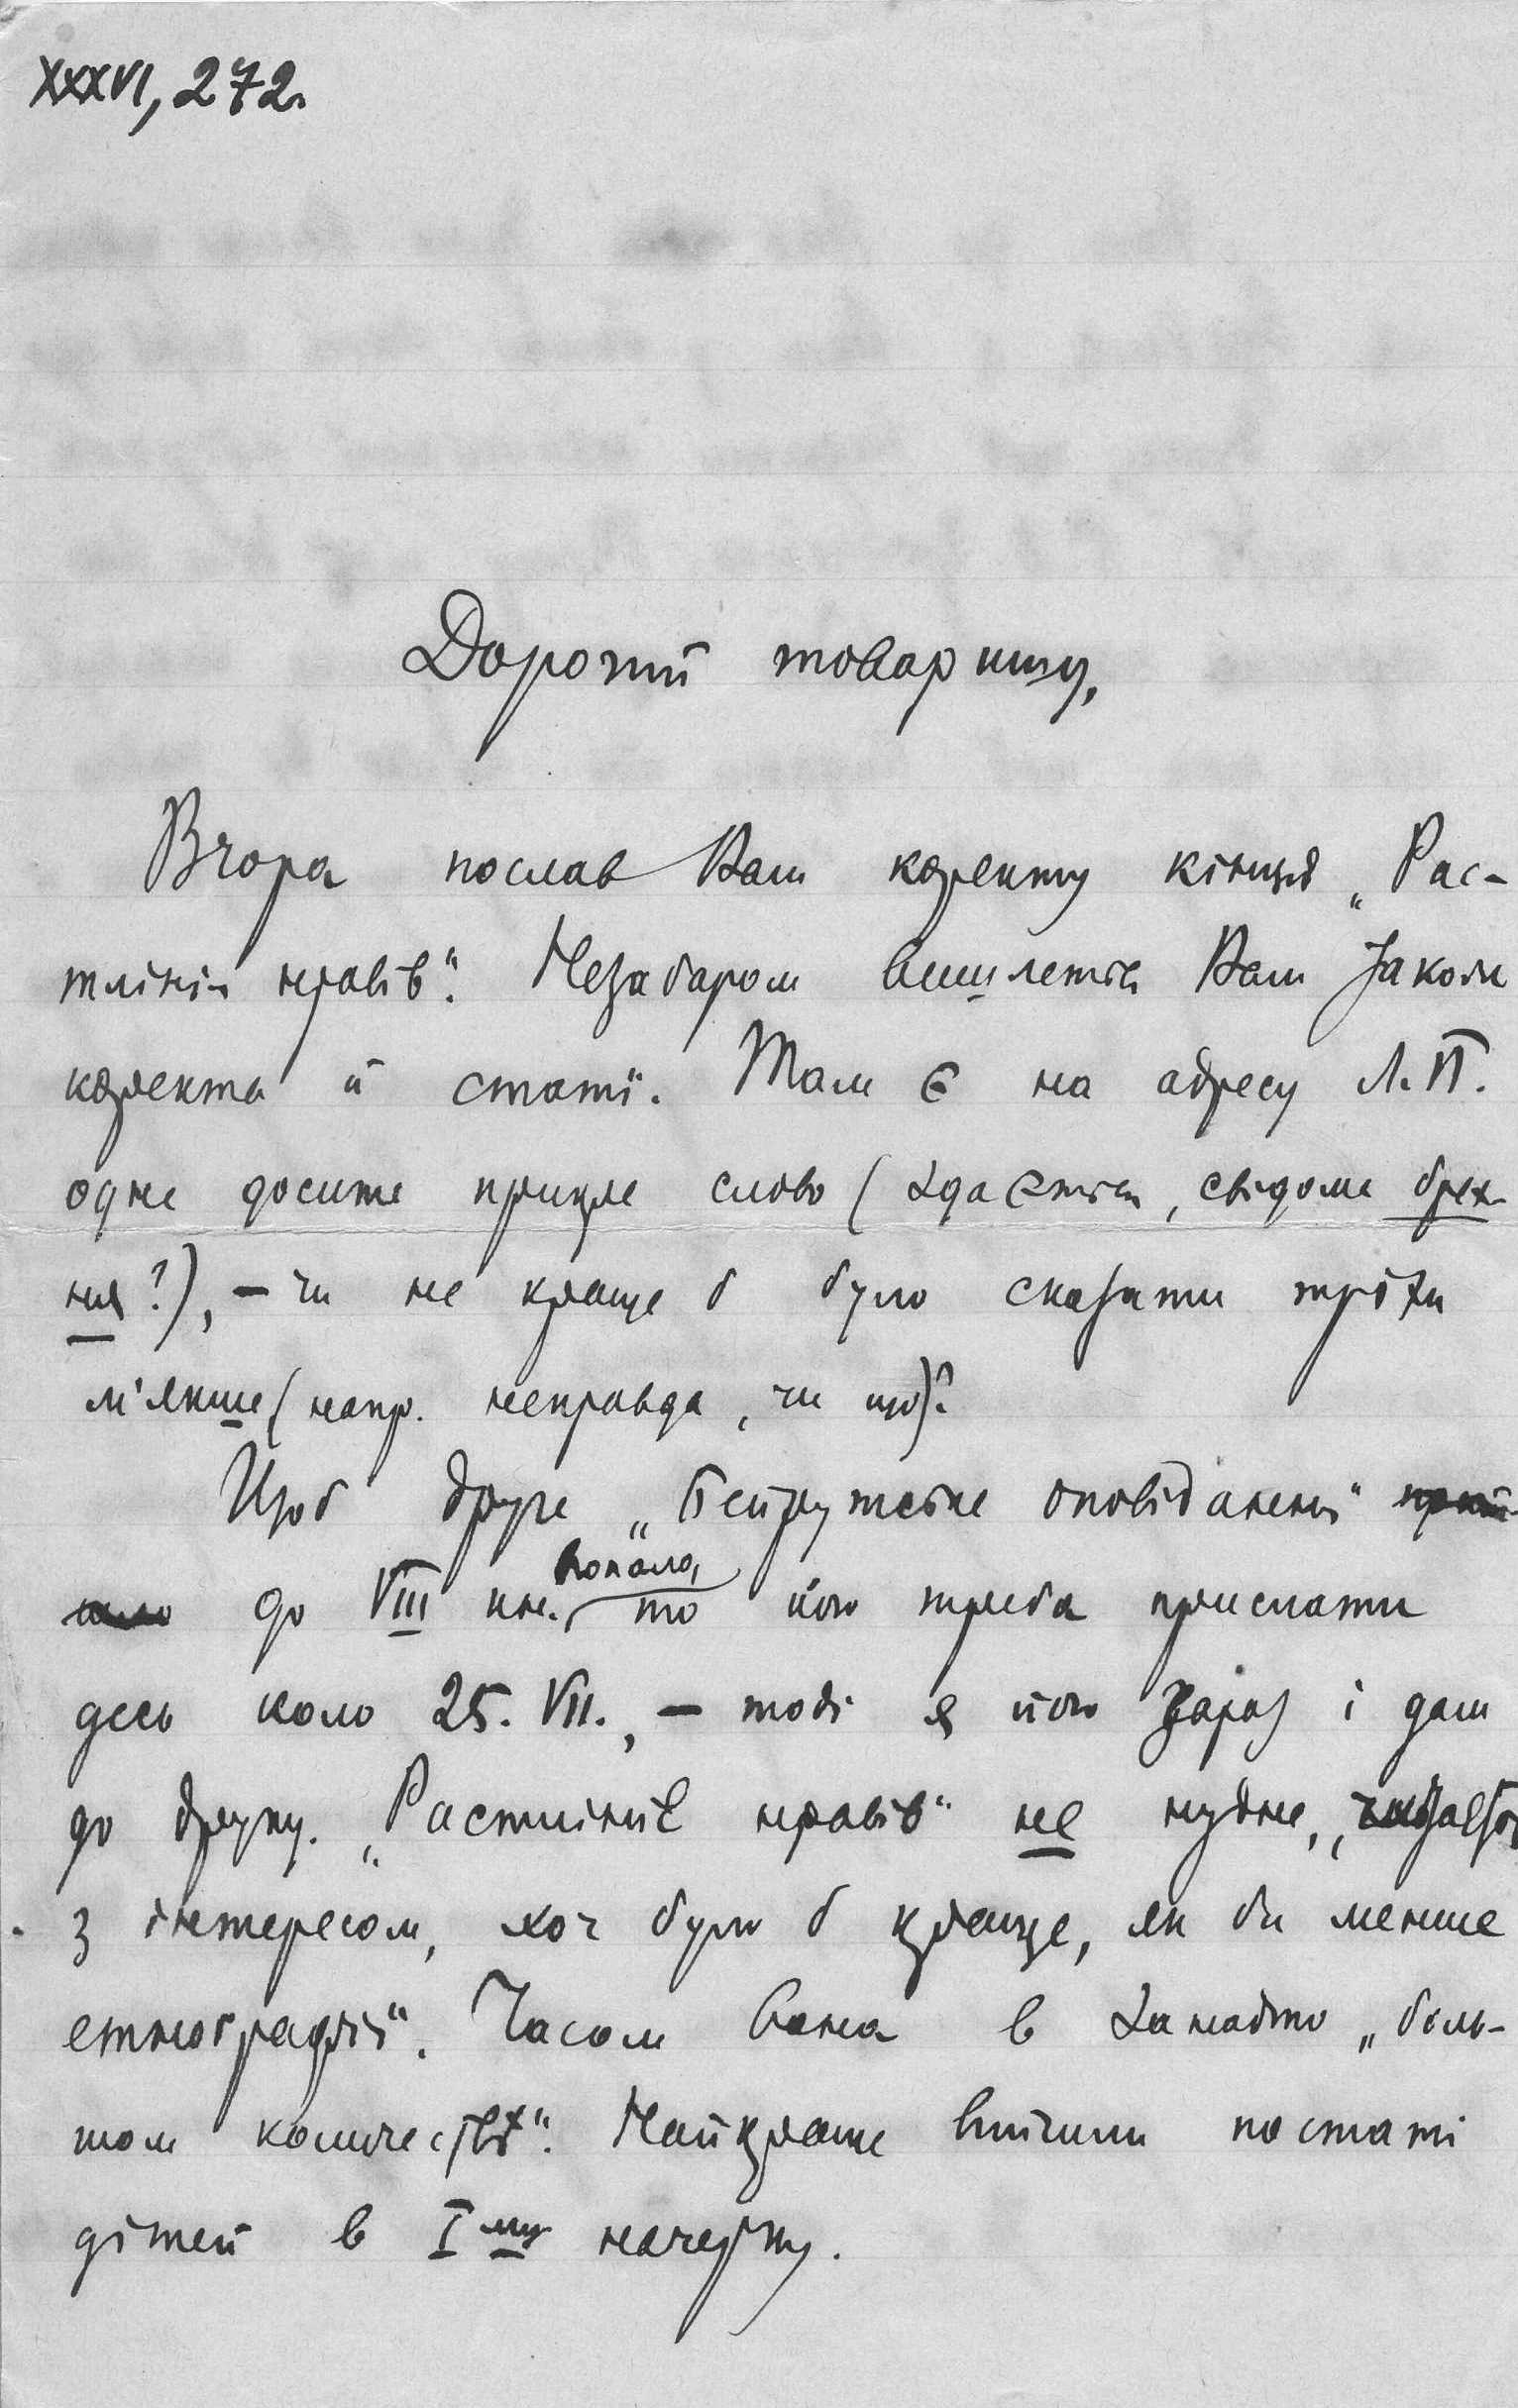 XXXVI, 272.
Дорогий товаришу,
Вчора послав Вам коректу кінця „Рас-
тлінія нравів“. Незабаром вишлеться Вам
коректа й статї. Там є на адресу Л. П.
одне досить прикре слово (здаєть ся, свідома брех-
ня?), – чи не краще б було сказати трохи
мʼякше (напр. неправда, чи що)?
Щоб друге „Бейрутське оповіданєнє“
до VIII кн. попало, то його треба прислати
десь коло 25. VII., – тоді я його зараз і дам
до друку. „Растлініє нравів“ не нудне,
з інтересом, хоч було б краще, як би менше
етноґрафії“. Часом вона в занадто „боль-
шом количествѣ“. Найкраще вийшли постаті
дітей в I му начерку.